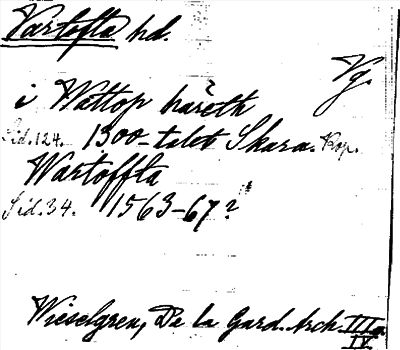 Vartofta hd.
Vg.
i Wattop hăreth
Sid. 124. 1300-talet Skara. Kop.
Wartoffta
Sid. 34. 1563-67?
Wieselgren, De la Gard. Arch. III
IV.